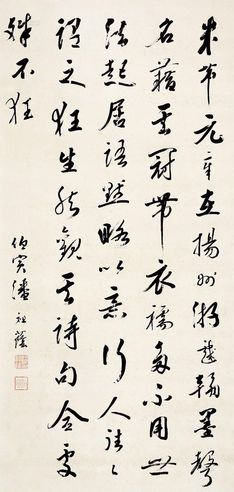 米芾元章在揚州游戲翰墨聲
名藉其冠帶衣襦多不用世
法起居語默略以意行人往々
謂之狂生然觀其詩句合處
殊不狂
伯寅潘祖蔭